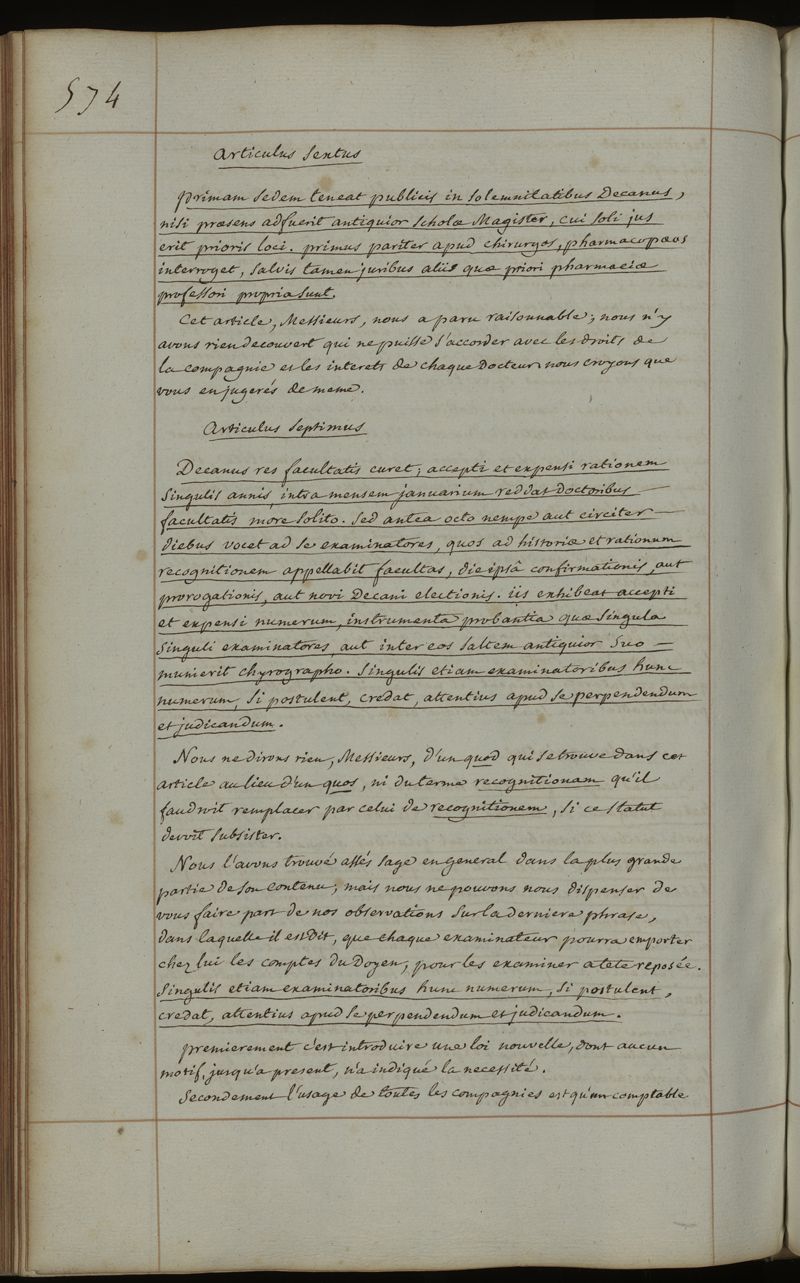 574
Articulus Sextus
primam sedem teneat publicis in solemnitatibus Decanus,
nisi præsens adfuerit antiquior scholæ Magister, cui soli jus
erit prioris loci. primus pariter apud chirurgos, pharmacopæos
interroget, salvis tamen juribus aliis quæ priori pharmaciæ
professori propria sunt.
Cet article, Messieurs, nous a paru raisonnable; nous n'y
avons rien decouvert qui ne puisse s'accorder avec les droits de
la compagnie et les interets de chaque Docteur. nous croyons que
vous en jugerés de meme.
Articulus Septimus
Decanus res facultatis curet; accepti et expensi rationem
singulis annis, intra mensem januarium reddat doctoribus
facultatis more solito. Sed antea octo nempe aut circiter
diebus vocet ad se examinatores, quos ad historiæ et rationum
recognitionem appellabit facultas, die ipsâ confirmationis, aut
prorogationis, aut novi Decani electionis. iis exhibeat accepti
et expensi numerum, instrumenta probantia quæ singula
singuli examinatores, aut inter eos saltem antiquior suo
munierit chyrographo. Singulis etiam examinatoribus hunc
numerum, si postulent, credat, attentius apud se perpendendum
et judicandum.
Nous ne dirons rien, Messieurs, d'un quod qui se trouve dans cet
article au lieu d'un quos, ni du terme recognitionam qu'il
faudroit remplacer par celui de recognitionem, si ce statut
devoit subsister.
Nous l'avons trouvé assés sage en general dans la plus grande
partie de son contenu; mais nous ne pouvons nous dispenser de
vous faire part de nos observations sur la derniere phrase,
dans laquelle il est dit, que chaque examinateur pourra emporter
chez lui les comptes du Doyen, pour les examiner a tete reposée.
Singulis etiam examinatoribus hunc numerum, si postulent,
credat, attentius apud se perpendendum et judicandum.
premierement c'est introduire une loi nouvelle, dont aucun
motif, jusqu'a present, n'a indiqué la necessité.
Secondement l'usage de toutes les compagnies est qu'un comptable